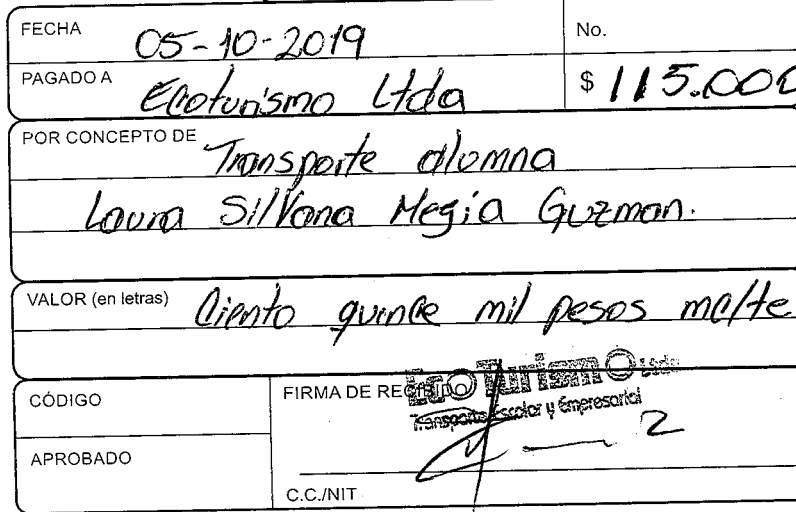 FECHA 05-10-2019 No.
PAGADO A Ecoturismo Ltda $ 115.000
POR CONCEPTO DE Transporte alumna
Laura Silvana Megia Guzman.
VALOR (en letras) Ciento quince mil pesos mc/te
CÓDIGO FIRMA DE RECIBIDO
EcoTurismO Ltda
Transporte Escolar y Empresarial
APROBADO
C.C./NIT